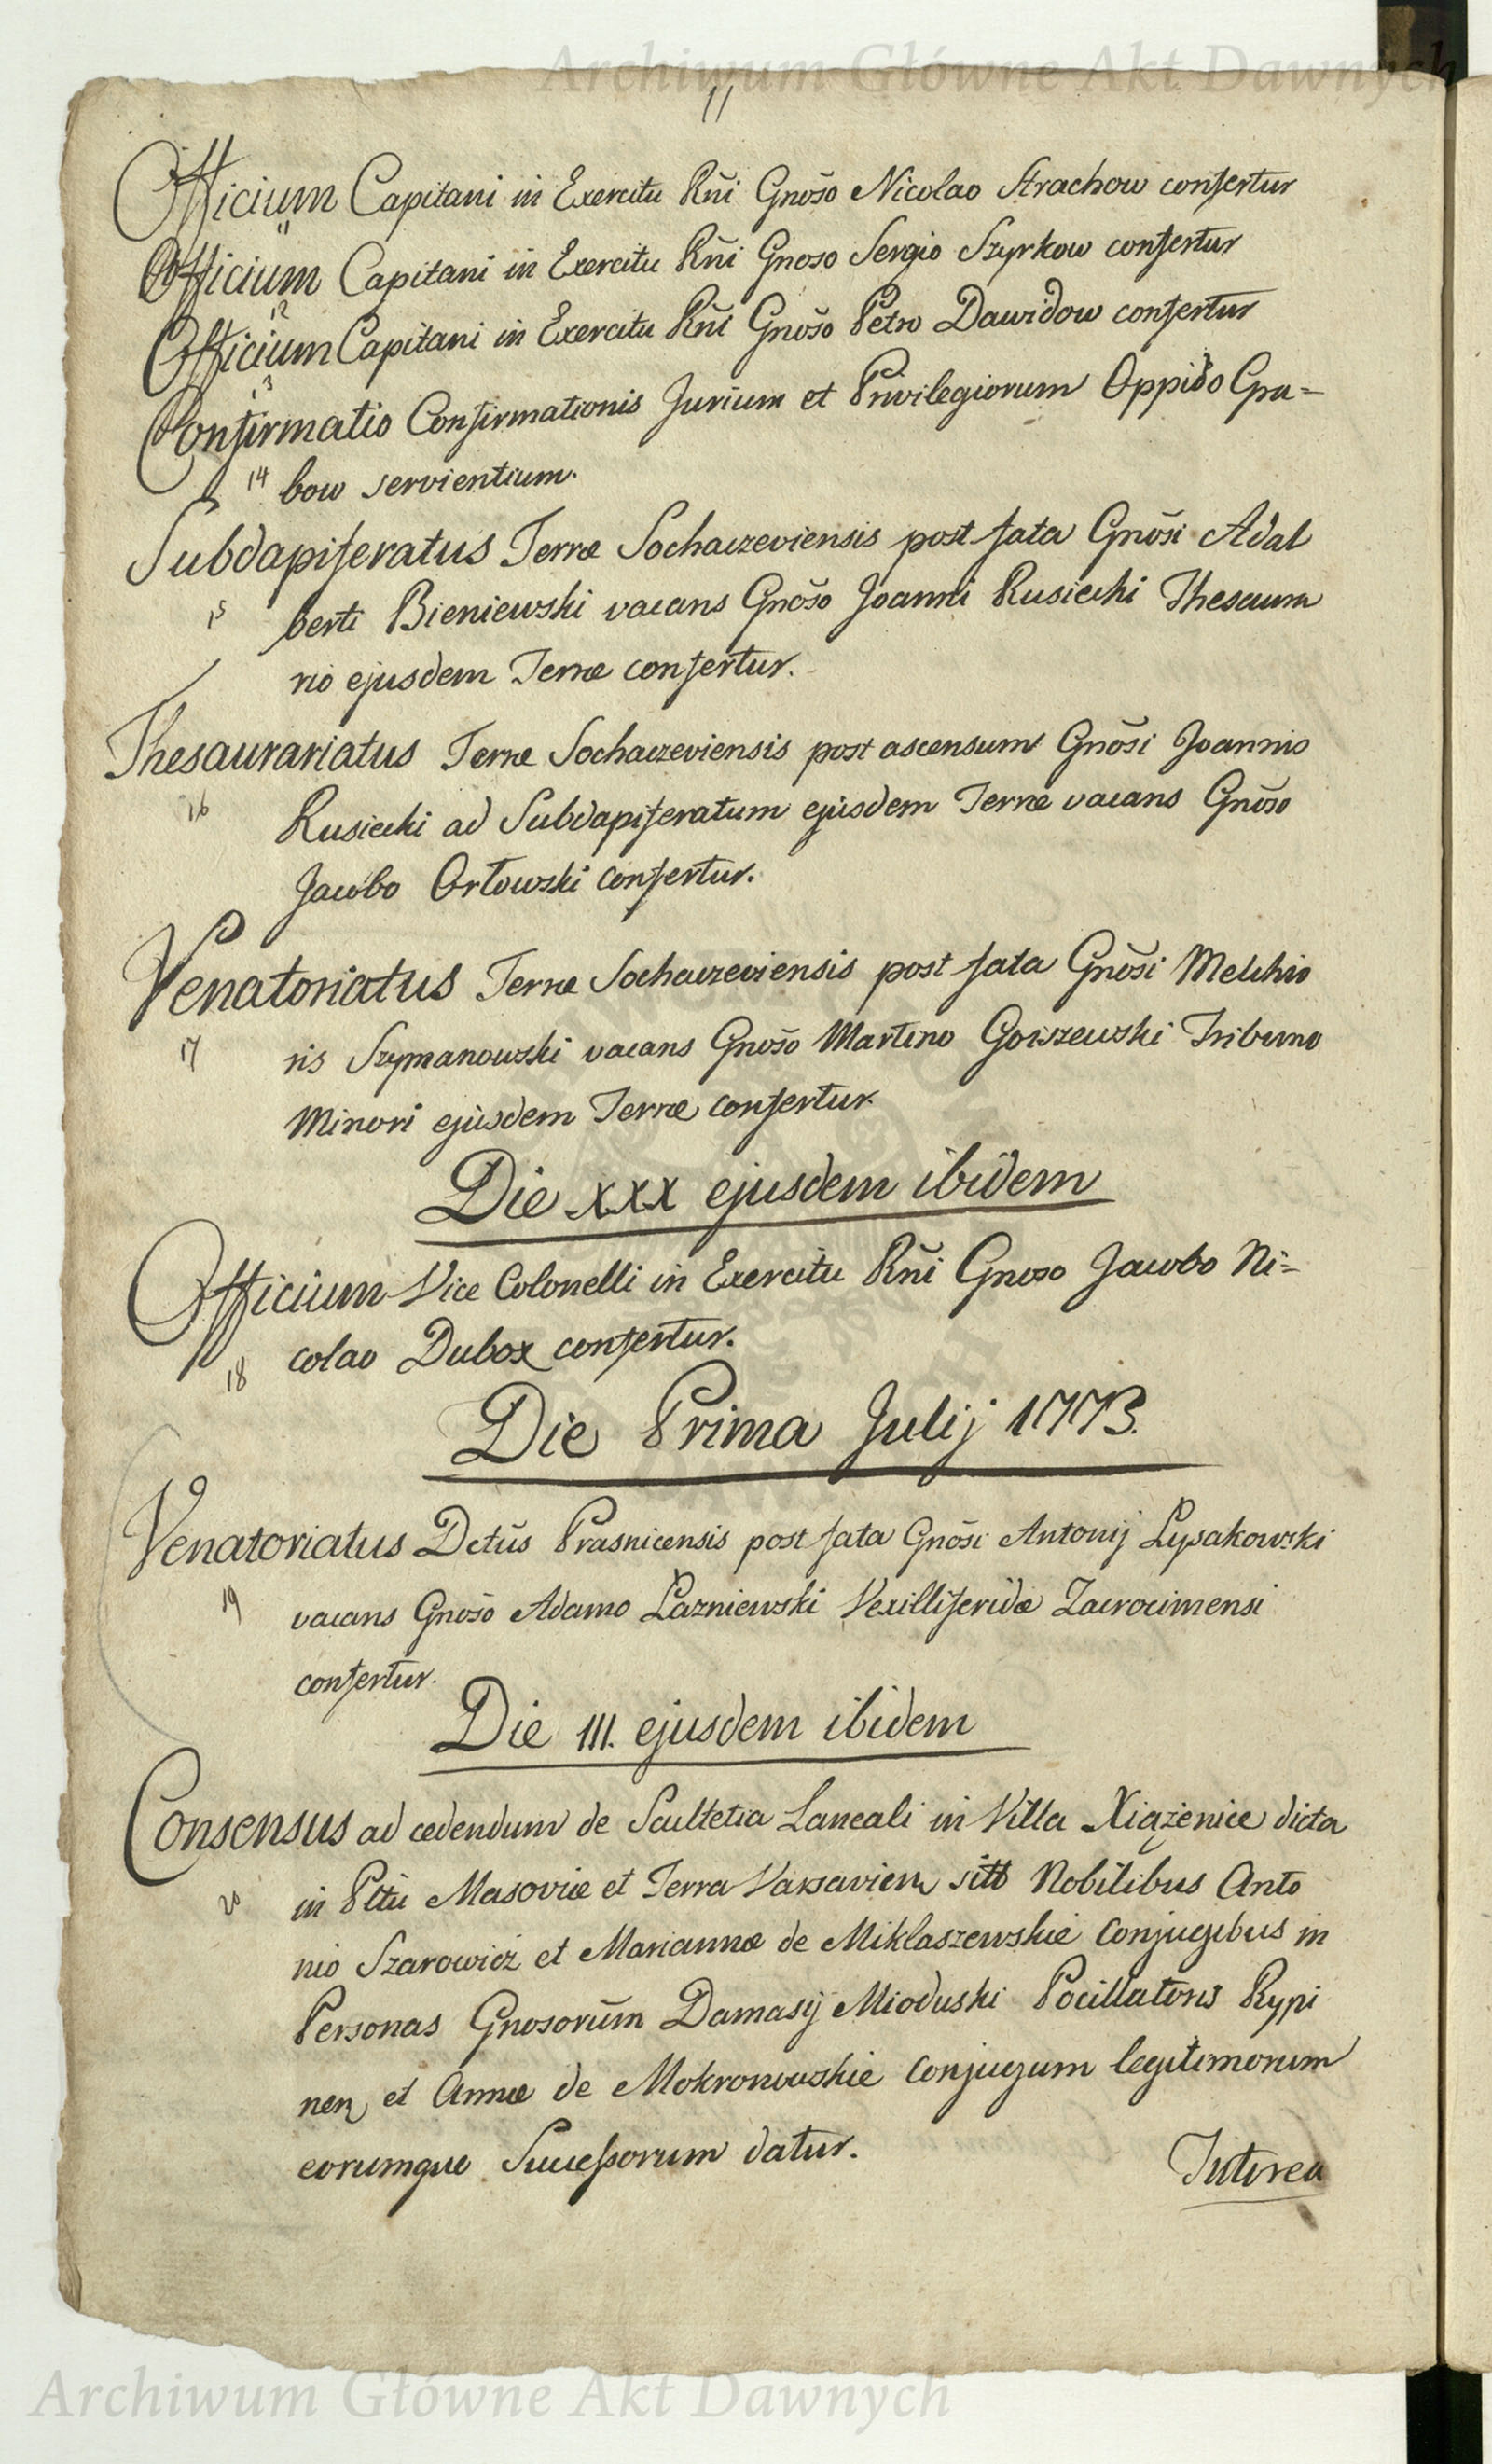 Archiwum Główne Akt Dawnych
11
Officium Capitani in Exercitu Rñi Gnõso Nicolao Strachow confertur
11
Officium Capitani in Exercitu Rñi Gnoso Sergio Szyrkow confertur
12
Officium Capitani in Exercitu Rñi Gnõso Petro Dawidow confertur
13
Confirmatio Confirmationis Jurium et Privilegiorum Oppido Gra=
14 bow servientium.
Subdapiferatus Terræ Sochaczeviensis post fata Gnõsi Adal
15 berti Bieniewski vacans Gnõso Joanni Rusiecki Thesaura
rio ejusdem Terræ confertur.
Thesaurariatus Terræ Sochaczeviensis post ascensum Gnõsi Joannis
16 Rusiecki ad Subdapiferatum ejusdem Terræ vacans Gnõso
Jacobo Orłowski confertur.
Venatoriatus Terræ Sochaczeviensis post fata Gnõsi Melchio
17 ris Szymanowski vacans Gnõso Martino Gorszewski Tribuno
Minori ejusdem Terræ confertur.
Die xxx ejusdem ibidem
Officium Vice Colonelli in Exercitu Rñi Gnoso Jacobo Ni=
18 colao Dubox confertur.
Die Prima Julij 1773.
Venatoriatus Dctũs Prasnicensis post fata Gnõsi Antonij Lysakowski
19 vacans Gnõso Adamo Łazniewski Vexilliferidæ Zacrocimensi
confertur.
Die III. ejusdem ibidem
Consensus ad cedendum de Scultetia Laneali in Villa Xiążenice dicta
20 in Pltũ Masoviæ et Terra Varsavien sitt Nobilibus Anto
nio Szarowicz et Mariannæ de Miklaszewskie Conjugibus in
Personas Gnosorũm Damasij Mioduski Pocillatoris Rypi
nen et Annæ de Mokronowskie Conjugum legitimorum
eorumque Successorum datur.
Interea
Archiwum Główne Akt Dawnych